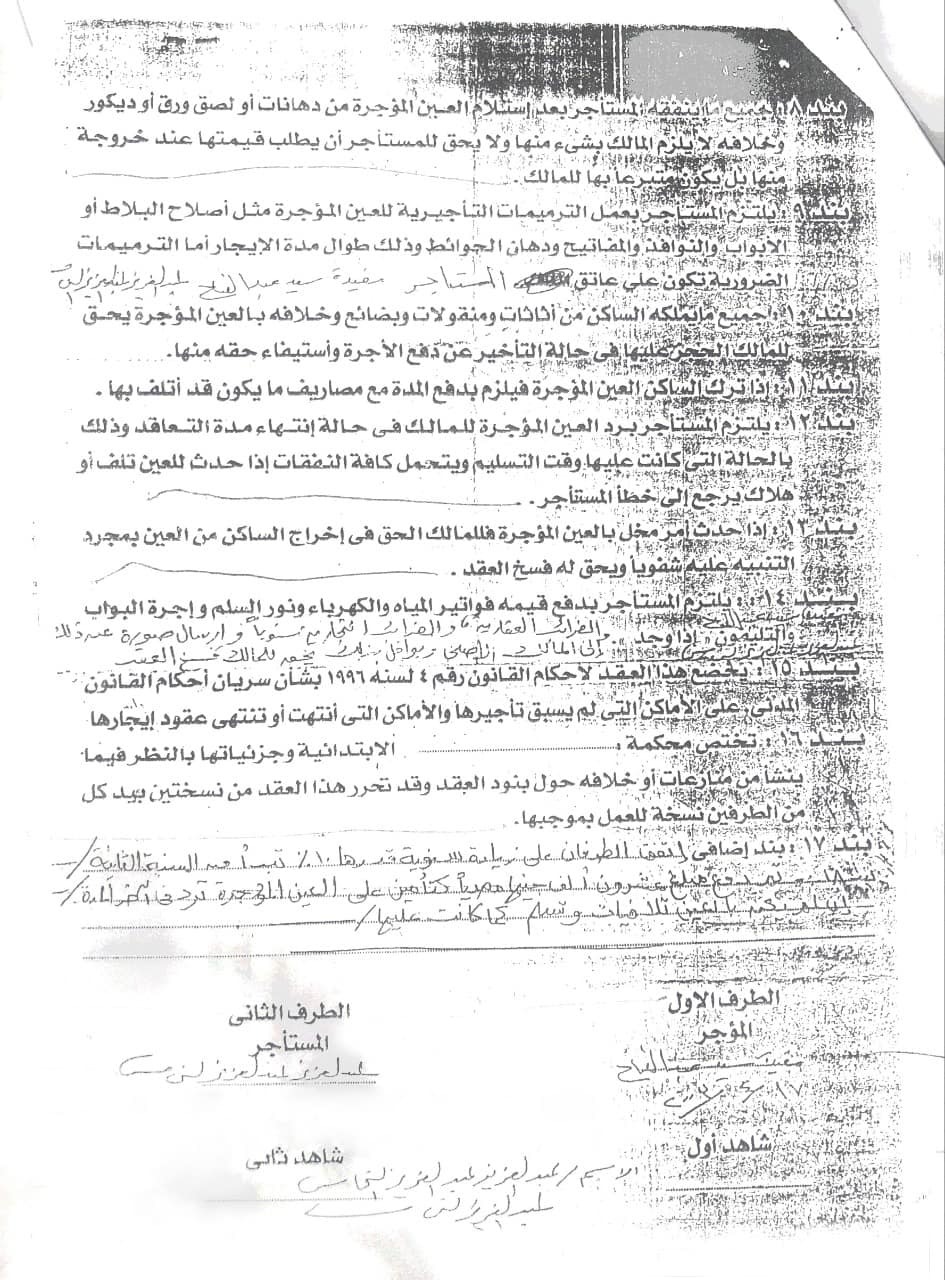 بند ٨ : جميع ما ينفقه المستأجر بعد إستلام العين المؤجرة من دهانات أو لصق ورق أو ديكور
وخلافه لا يلزم المالك بشىء منها ولا يحق للمستأجر أن يطلب قيمتها عند خروجة
منها بل يكون متبرعا بها للمالك .
بند ٩ : يلتزم المستأجر بعمل الترميمات التأجيرية للعين المؤجرة مثل أصلاح البلاط أو
الأبواب والنوافذ والمفاتيح ودهان الحوائط وذلك طوال مدة الإيجار أما الترميمات
الضرورية تكون على عاتق المستأجر مفيدة سعد عبد الفتاح عبد العزيز عبد العزيز
بند ١٠ : جميع ما يملكه الساكن من أثاثات ومنقولات وبضائع وخلافه بالعين المؤجرة يحق
للمالك الحجز عليها فى حالة التأخير عن دفع الأجرة وأستيفاء حقه منها.
بند ١١ : إذا ترك الساكن العين المؤجرة فيلزم بدفع المدة مع مصاريف ما يكون قد أتلف بها .
بند ١٢ : يلتزم المستأجر برد العين المؤجرة للمالك فى حالة إنتهاء مدة التعاقد وذلك
بالحالة التى كانت عليها وقت التسليم ويتحمل كافة النفقات إذا حدث للعين تلف أو
هلاك يرجع إلى خطأ المستأجر .
بند ١٣ : إذا حدث أمر مخل بالعين المؤجرة فللمالك الحق فى إخراج الساكن من العين بمجرد
التنبيه عليه شفوياً ويحق له فسخ العقد .
بند ١٤ : يلتزم المستأجر بدفع قيمه فواتير المياه والكهرباء ونور السلم و إجرة البواب
والتليفون إذا وجد . والضرائب العقارية والضرائب التجارية سنوياً وارسال صورة
إلى المالك يحق للمالك فسخ العقد
بند ١٥ : يخضع هذا العقد لأحكام القانون رقم ٤ لسنه ١٩٩٦ بشأن سريان أحكام القانون
المدنى على الأماكن التى لم يسبق تأجيرها والأماكن التى أنتهت أو تنتهى عقود إيجارها
بند ١٦ : تختص محكمة : الابتدائية وجزئياتها بالنظر فيما
ينشأ من منازعات أو خلافه حول بنود العقد وقد تحرر هذا العقد من نسختين بيد كل
من الطرفين نسخة للعمل بموجبها.
بند ١٧ : بند إضافى اتفق الطرفان على زيادة سنوية قدرها ١٠٪ تبدأ من السنة الثانية
بند ١٨ - تم دفع مبلغ عشرون ألف جنيها مصرياً كتأمين على العين المؤجرة ترد فى آخر المدة
إذا لم يكن بالعين تلافيات وتسلم كما كانت عليها
الطرف الأول
المؤجر
مفيدة سعد عبد الفتاح
الطرف الثانى
المستأجر
عبد العزيز عبد العزيز
شاهد أول
شاهد ثانى
الاسم / عبد العزيز عبد العزيز النحاس
عبد العزيز